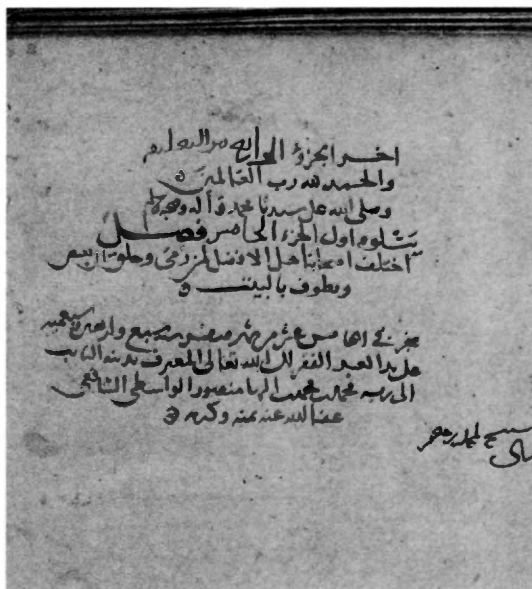 اخر الجزؤ الرابع من التعليق
والحمد لله رب العالمين
وصلى الله على سيدنا محمد واله وصحبه وسلم
يتلوه اول الجزء الخامس فصل
اختلف اصحابنا هل الافضل لمن رمى وحلق ان
ويطوف بالبيت
في الخامس عشر من شهر سنة سبع واربعين
على يد العبد الفقير الى الله تعالى المعترف بذنبه التائب
الى ربه محمد بن محمد منصور الواسطي الشافعي
عفا الله عنه بمنه وكرمه